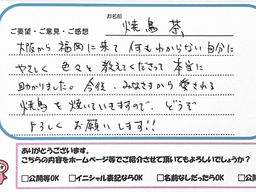 お名前
焼鳥 恭
ご要望・ご意見・ご感想
大阪から福岡に来て何もわからない自分に
やさしく色々と教えてくださって本当に
助かりました。今後、みなさまから愛される
焼鳥を焼いていきますので、どうぞ
よろしくお願いします!!
ありがとうございます。
こちらの内容をホームページ等でご紹介させて頂いてもよろしいでしょうか?
□公開等OK □イニシャル表記ならOK □名前なしだったらOK □公